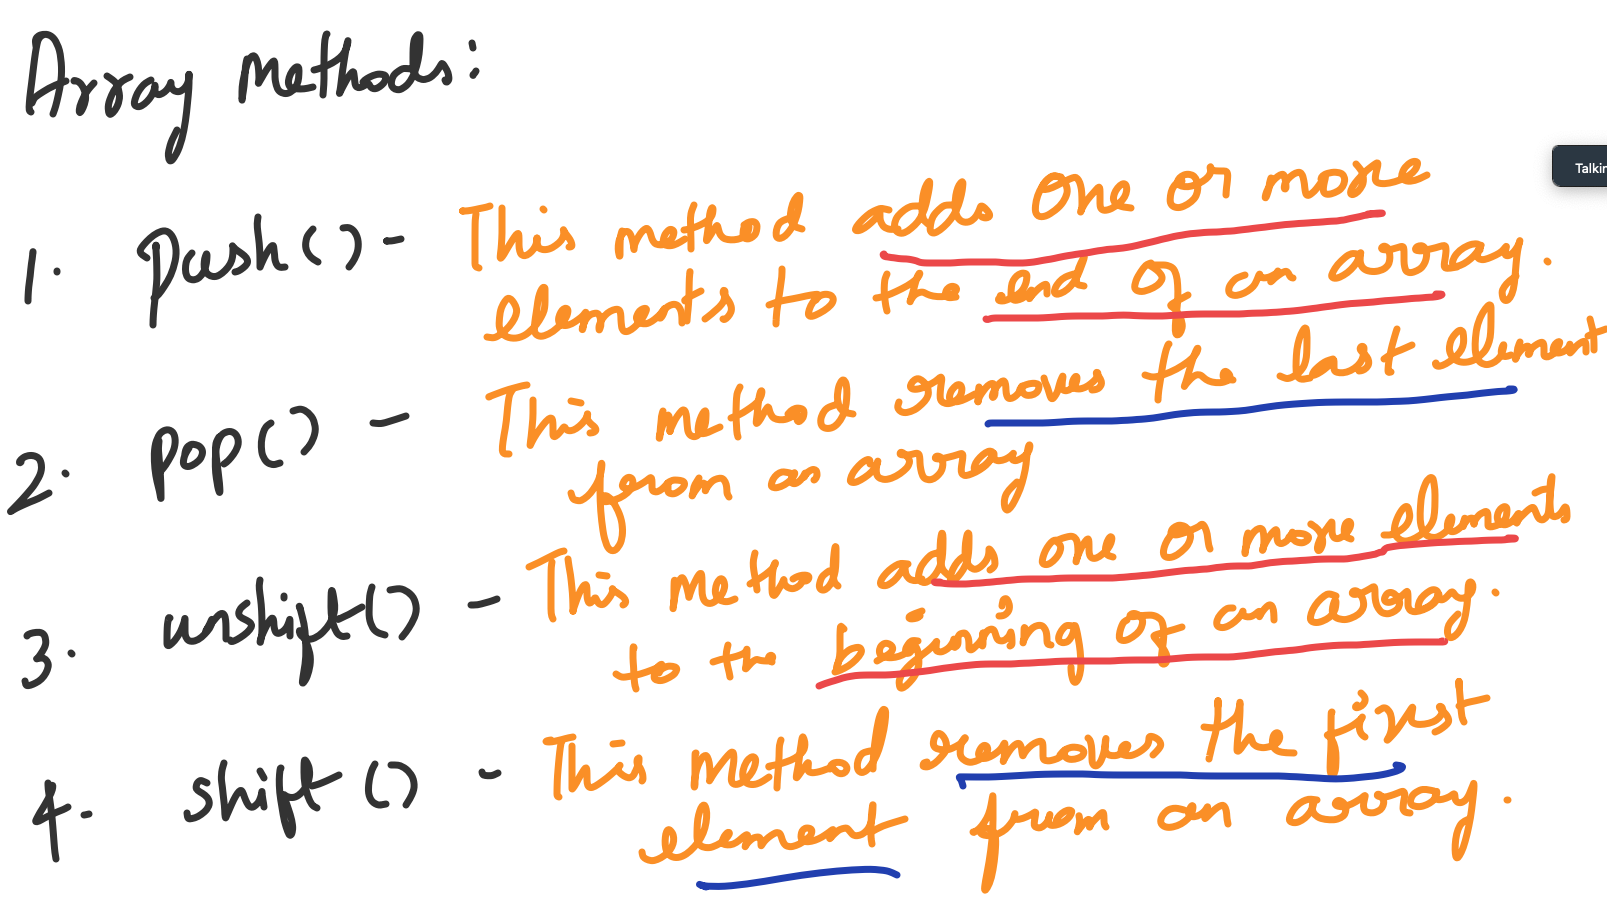 Array Methods:
Talkin
1. Push() - This method adds one or more
elements to the end of an array.
2. POP() - This method removes the last element
from an array
3. unshift() - This Method adds one or more elements
to the beginning of an array.
4. shift() - This Method removes the first
element from an array.